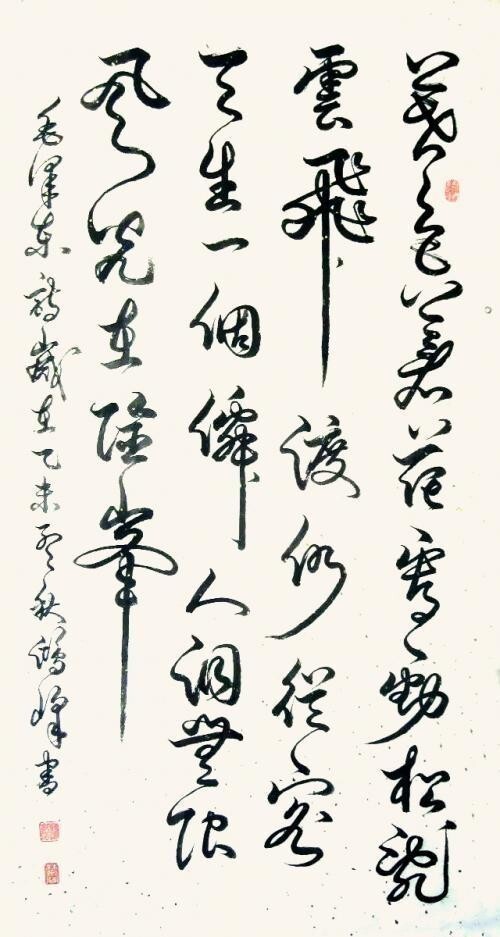 暮色蒼茫看勁松亂
雲飛渡仍從容
天生一個僊人洞無限
風光在險峯
毛澤東詩歲在乙未秋鴻峰書